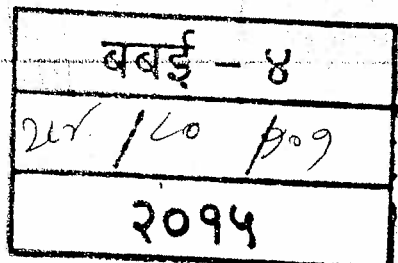 बबई - ४
/ ८० / १०१
२०१५